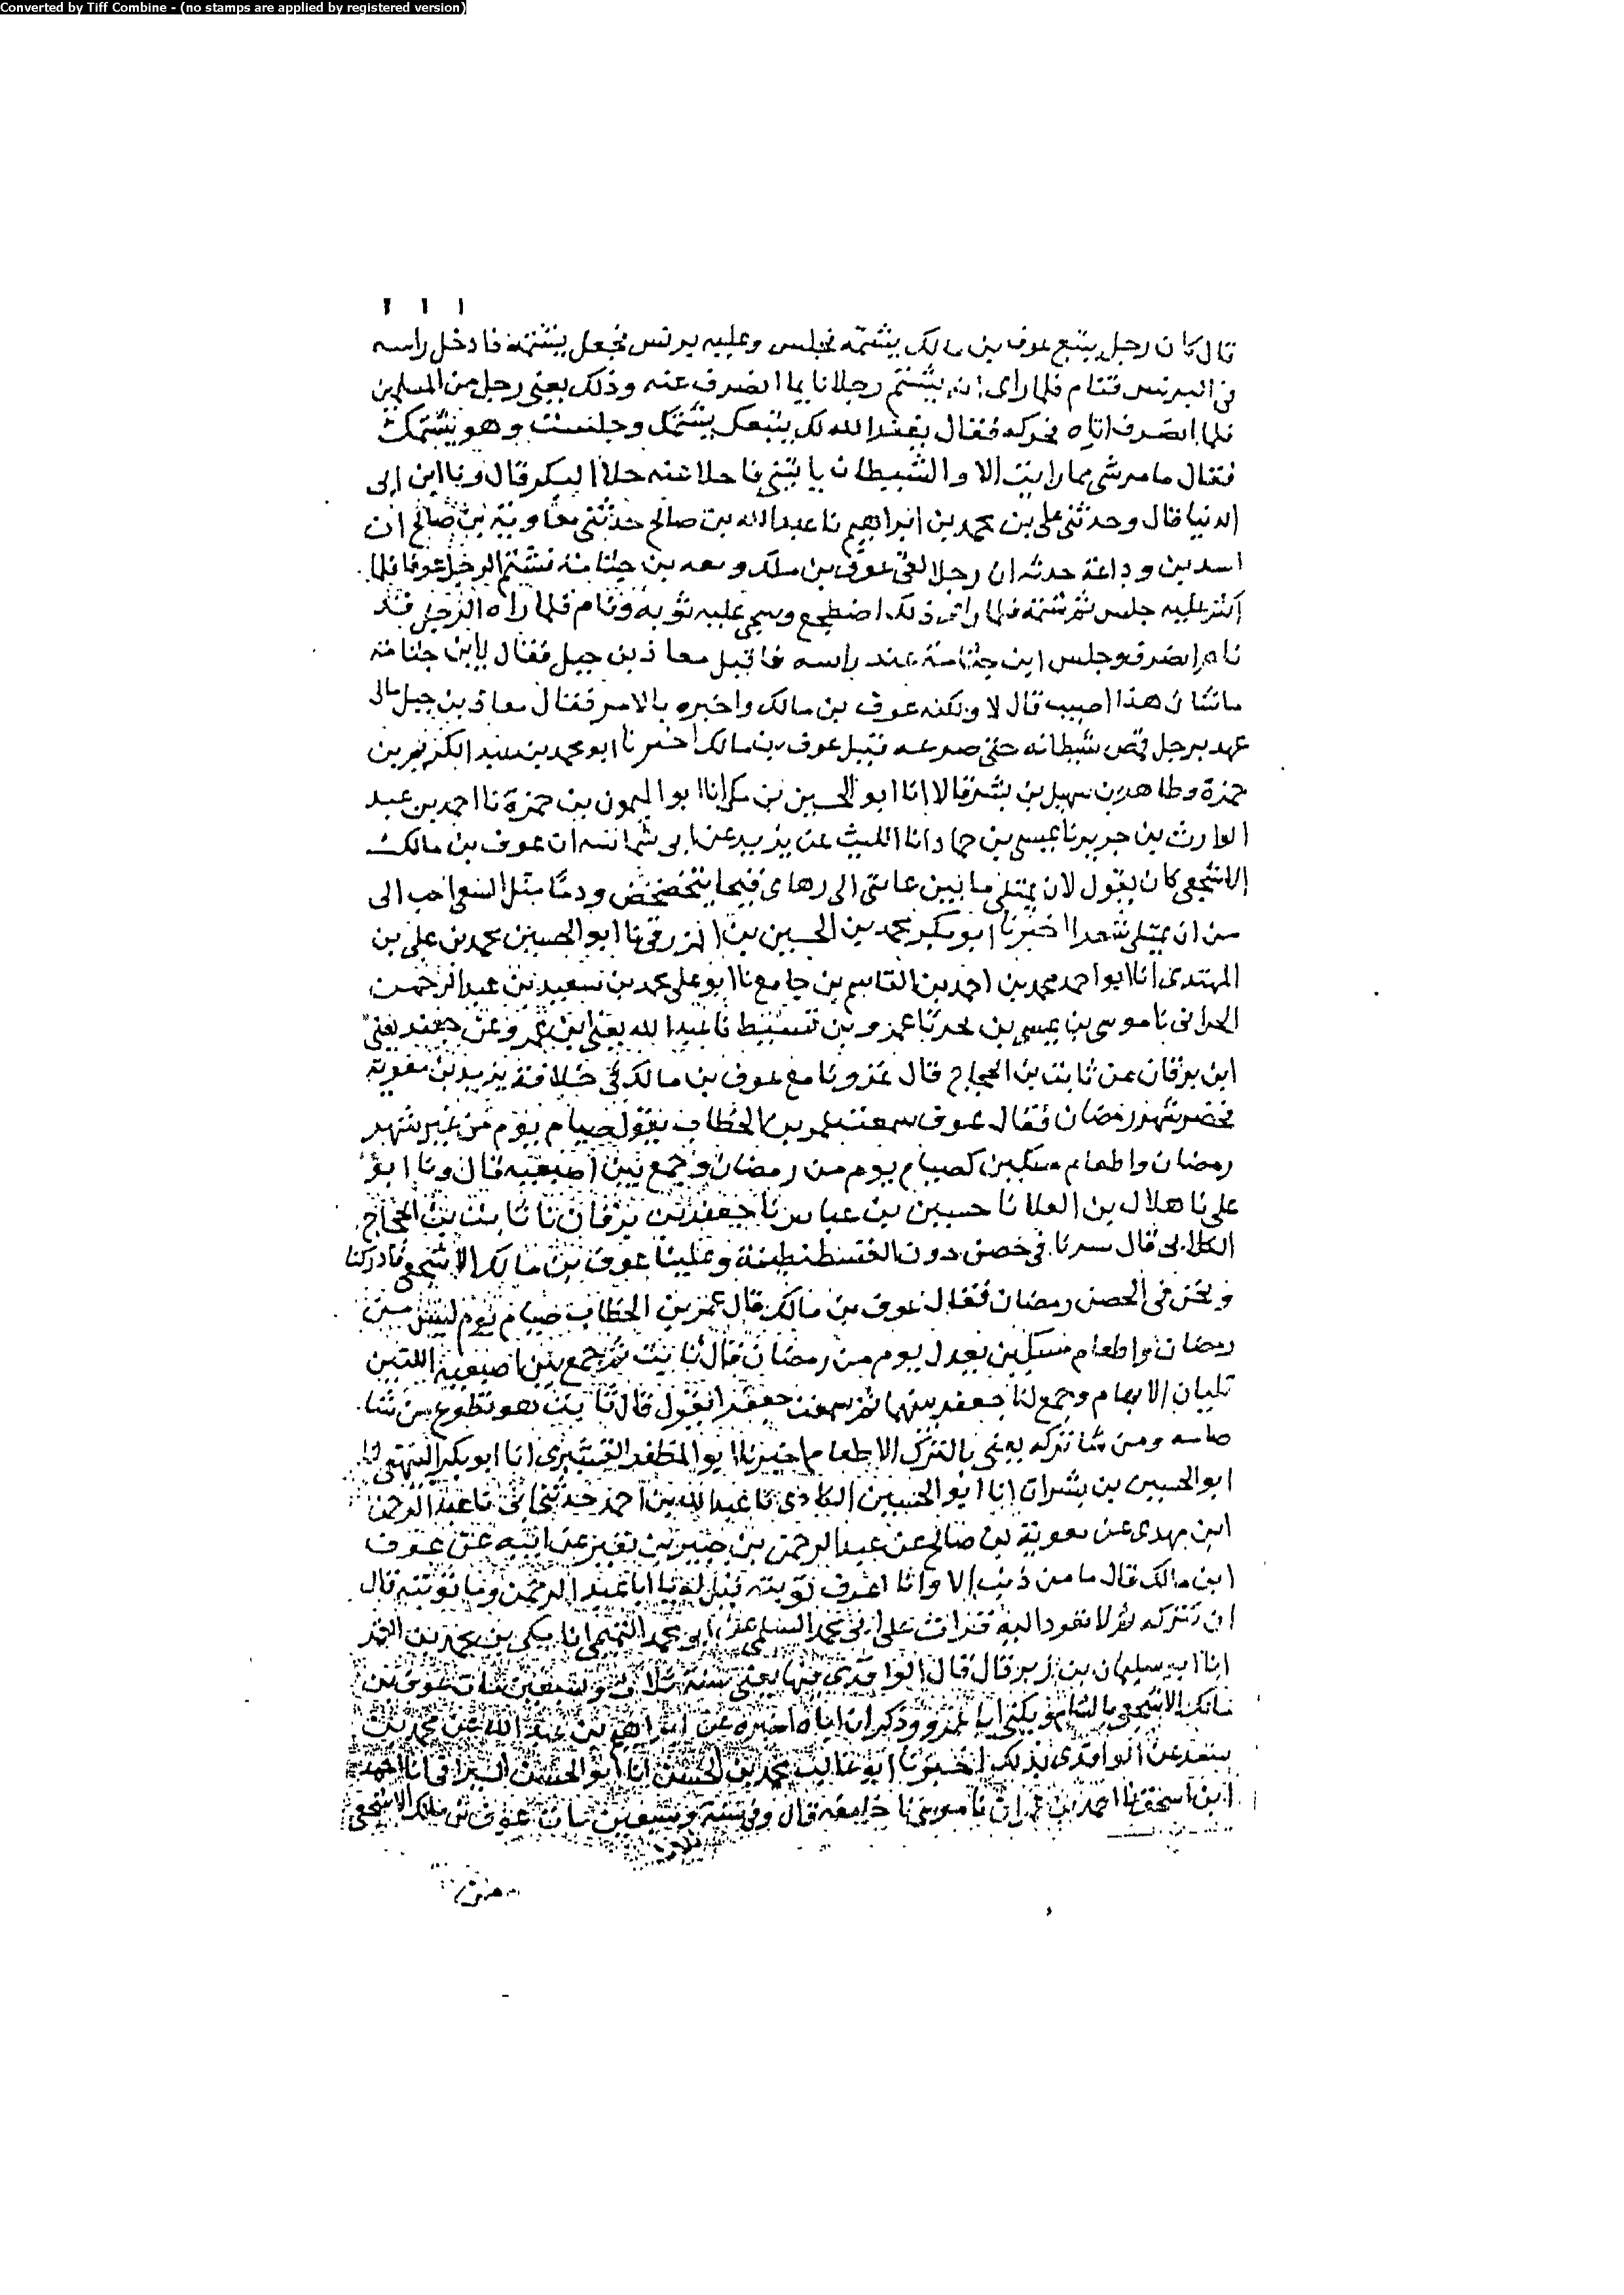 Converted by Tiff Combine - (no stamps are applied by registered version)
١١١
قال كان رجل يتبع عوف بن مالك يشتمه فجلس وعليه برنس فجعل يشتمه فادخل راسه
في البرنس فنام فلما راى انه يشتم رجلا نايما انصرف عنه وذلك يعني رجل من المسلمين
فلما انصرف اتاه فحركه فقال يغفر الله لك يتبعك يشتمك وجلست وهو يشتمك
فقال ما مر شي مما رايت الا والشيطان ياتيني فاحلا عنه حلاا اليكم قال ونا ابن ابي
الدنيا قال وحدثني علي بن محمد بن ابراهيم نا عبد الله بن صالح حدثني معاوية بن صالح ان
اسد بن وداعة حدثه ان رجلا لقي عوف بن ملك ومعه بن جثامة فشتم الرجل عوفا فلما
اكثر عليه جلس ثم شتمه فلما راى ذلك اضطجع وسجى عليه ثوبه ونام فلما راه الرجل قد
نام انصرف وجلس ابن جثامة عند راسه فاقبل معاذ بن جبل فقال يا ابن جثامة
ما شان هذا اصيب قال لا ولكنه عوف بن مالك واخبره بالامر فقال معاذ بن جبل مالي
عهد برجل قمص شيطانه حتى صرعه قبل عوف بن مالك اخبرنا ابو محمد بن عبد الكريم بن
حمزة وطاهر بن سهل بن بشر قالا انا ابو الحسين بن مكي انا ابو الميمون بن حمزة نا احمد بن عبد
الوارث بن جرير نا عيسى بن حماد انا الليث عن يزيد عن ابي شماسة ان عوف بن مالك
الاشجعي كان يقول لان يمتلي ما بين عانتي الى رهاى قيحا يتخضخض ودما مثل السقا احب الى
من ان يمتلي شعرا اخبرنا ابو بكر محمد بن الحسين بن المزرقي نا ابو الحسين محمد بن علي بن
المهتدي انا ابو احمد محمد بن احمد بن القاسم بن جامع نا ابو علي محمد بن سعيد بن عبد الرحمن
الحراني نا موسى بن عيسى بن بحر نا عمرو بن قسيط نا عبيد الله يعني ابن عمرو عن جعفر يعني
ابن برقان عن ثابت بن الحجاج قال غزونا مع عوف بن مالك في خلافة يزيد بن معوية
فحضر شهر رمضان فقال عوف سمعت عمر بن الخطاب يقول صيام يوم من غير شهر
رمضان واطعام مسكين كصيام يوم من رمضان وجمع بين اصبعيه قال ونا ابو
علي نا هلال بن العلا نا حسين بن عياش نا جعفر بن برقان نا ثابت بن الحجاج
الكلابي قال سرنا في حصن دون القسطنطينة وعلينا عوف بن مالك الاشجعي فادركنا
ونحن في الحصن رمضان فقال عوف بن مالك قال عمر بن الخطاب صيام يوم ليس من
رمضان واطعام مسكين يعدل يوم من رمضان قال ثابت ثم جمع بين اصبعيه اللتين
تليان الابهام وجمع لنا جعفر بينهما ثم سمعت جعفرا يقول قال ثابت هو تطوع من شا
صامه ومن شا تركه يعني بالترك الاطعام اخبرنا ابو المظفر القشيري انا ابو بكر البيهقي انا
ابو الحسين بن بشران انا ابو الحسين الكاذي نا عبد الله بن احمد حدثني ابي نا عبد الرحمن
ابن مهدي عن معوية بن صالح عن عبد الرحمن بن جبير بن نفير عن ابيه عن عوف
ابن مالك قال ما من ذنب الا وانا اعرف توبته قيل له يا ابا عبد الرحمن وما توبته قال
ان تتركه ثم لا تعود اليه قرات على ابي محمد السلمي عن ابي محمد التميمي انا مكي بن محمد بن الغمر
انا ابو سليمان بن زبر قال قال الواقدي فيها يعني سنة ثلاث وسبعين مات عوف بن
مالك الاشجعي بالشام يكنى ابا عمرو وذكر ان اباه اخبره عن ابراهيم بن عبد الله عن محمد بن
سعد عن الواقدي بذلك اخبرنا ابو غالب محمد بن الحسن انا ابو الحسن السيرافي انا احمد
ابن اسحق نا احمد بن عمران نا موسى نا خليفة قال وفي سنة وسبعين مات عوف بن ملك الاشجعي
ثلاث